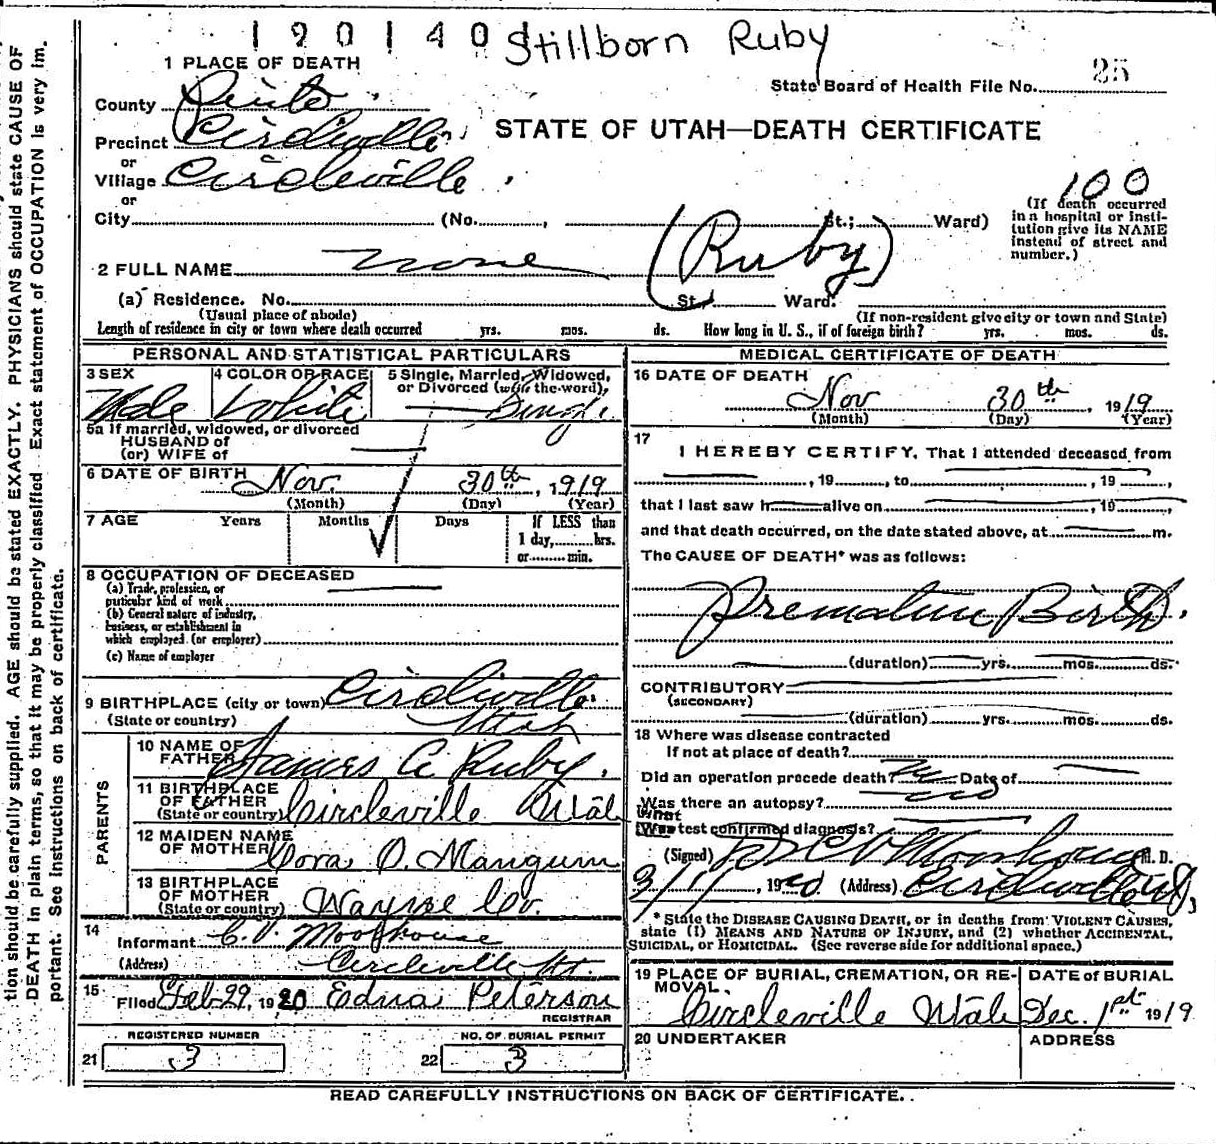 1901401 Stillborn Ruby
25
1 PLACE OF DEATH
State Board of Health File No.
County Piute
STATE OF UTAH—DEATH CERTIFICATE
Precinct Circleville
or
Village Circleville
or
City (No. , St.; Ward)
100
(If death occurred
in a hospital or insti-
tution give its NAME
instead of street and
number.)
2 FULL NAME none (Ruby)
(a) Residence. No. St., Ward.
(Usual place of abode) (If non-resident give city or town and State)
Length of residence in city or town where death occurred yrs. mos. ds. How long in U. S., if of foreign birth? yrs. mos. ds.
PERSONAL AND STATISTICAL PARTICULARS
3 SEX 4 COLOR OR RACE 5 Single, Married, Widowed,
or Divorced (write the word),
Male White Single
5a If married, widowed, or divorced
HUSBAND of
(or) WIFE of
6 DATE OF BIRTH Nov. 30th, 1919
(Month) (Day) (Year)
7 AGE Years Months Days If LESS than
1 day, hrs.
or min.
8 OCCUPATION OF DECEASED
(a) Trade, profession, or
particular kind of work
(b) General nature of industry,
business, or establishment in
which employed (or employer)
(c) Name of employer
9 BIRTHPLACE (city or town) Circleville
(State or country) Utah
PARENTS
10 NAME OF
FATHER James A Ruby.
11 BIRTHPLACE
OF FATHER
(State or country) Circleville Utah
12 MAIDEN NAME
OF MOTHER Cora O. Mangum
13 BIRTHPLACE
OF MOTHER
(State or country) Wayne Co.
14
Informant C. V. Moorhouse
(Address) Circleville Ut.
15 Filed Feb 29, 1920 Edna Peterson
REGISTRAR
REGISTERED NUMBER NO. OF BURIAL PERMIT
21 3 22 3
MEDICAL CERTIFICATE OF DEATH
16 DATE OF DEATH
Nov 30th, 1919
(Month) (Day) (Year)
17
I HEREBY CERTIFY, That I attended deceased from
, 19 , to , 19 ,
that I last saw h alive on , 19 ,
and that death occurred, on the date stated above, at m.
The CAUSE OF DEATH* was as follows:
Premature Birth.
(duration) yrs. mos. ds.
CONTRIBUTORY
(SECONDARY)
(duration) yrs. mos. ds.
18 Where was disease contracted
If not at place of death?
Did an operation precede death? No Date of
Was there an autopsy? No
What
Was test confirmed diagnosis?
(Signed) Dr C V Moorhouse M. D.
3/11, 1920 (Address) Circleville Ut,
* State the DISEASE CAUSING DEATH, or in deaths from VIOLENT CAUSES,
state (1) MEANS AND NATURE OF INJURY, and (2) whether ACCIDENTAL,
SUICIDAL, or HOMICIDAL. (See reverse side for additional space.)
19 PLACE OF BURIAL, CREMATION, OR RE-
MOVAL. DATE of BURIAL
Circleville Utah Dec. 1st 1919
20 UNDERTAKER ADDRESS
READ CAREFULLY INSTRUCTIONS ON BACK OF CERTIFICATE.
tion should be carefully supplied. AGE should be stated EXACTLY. PHYSICIANS should state CAUSE OF
DEATH in plain terms, so that it may be properly classified. Exact statement of OCCUPATION is very im-
portant. See instructions on back of certificate.